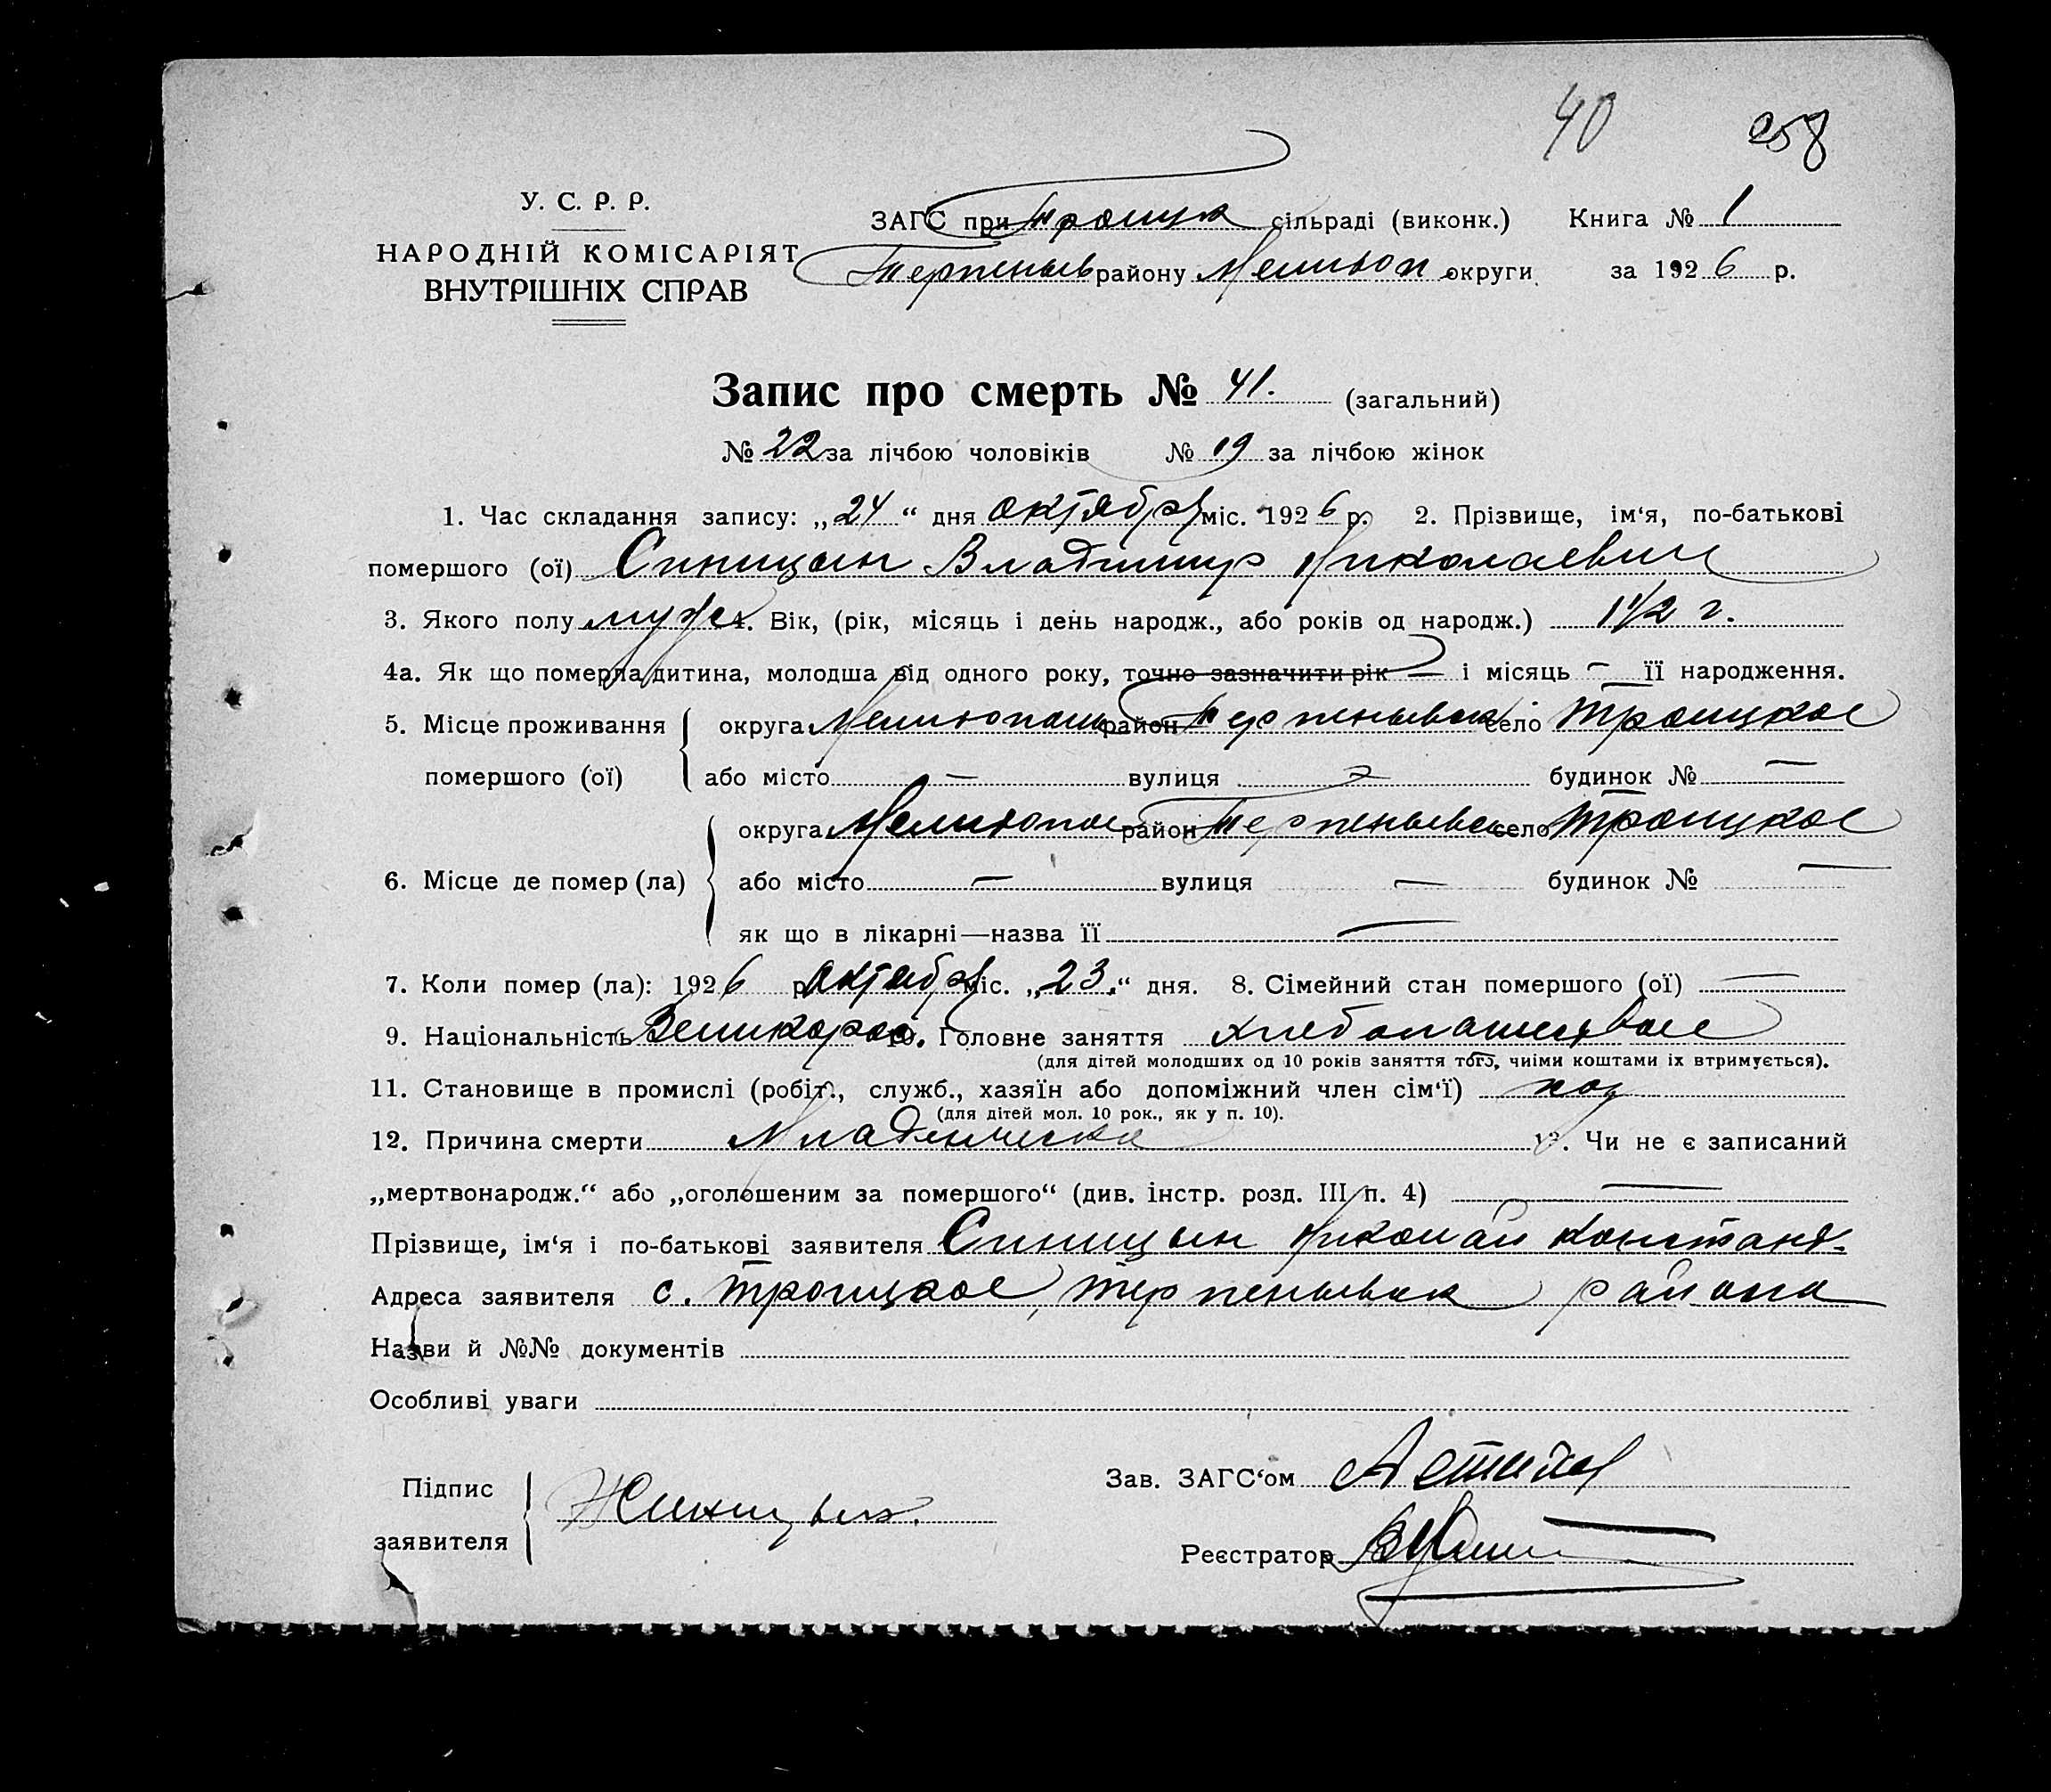 40 258
У. С. Р. Р.
НАРОДНІЙ КОМІСАРІЯТ
ВНУТРІШНІХ СПРАВ
ЗАГС при Троицк сільраді (виконк.) Книга № 1
Терпеньев району Мелитоп округи за 1926 р.
Запис про смерть № 41. (загальний)
№ 22 за лічбою чоловіків № 19 за лічбою жінок
1. Час складання запису: „24“ дня октября міс. 1926 р. 2. Прізвище, ім‘я, по-батькові
помершого (ої) Синицын Владимир Николаевич
3. Якого полу муж 4. Вік, (рік, місяць і день народж., або років од народж.) 1 1/2 г.
4а. Як що померла дитина, молодша від одного року, точно зазначити рік — і місяць — її народження.
5. Місце проживання помершого (ої) округа район село Троицкое
або місто — вулиця — будинок № —
6. Місце де помер (ла) округа Мелитопол район Терпеньевск село Троицкое
або місто — вулиця — будинок № —
як що в лікарні—назва її —
7. Коли помер (ла): 1926 р. октября міс. „23“ дня. 8. Сімейний стан помершого (ої) —
9. Національність Великорос 10. Головне заняття хлебопашество
(для дітей молодших од 10 років заняття того, чиїми коштами іх втримується).
11. Становище в промислі (робіт., служб., хазяїн або допоміжний член сім‘ї) хоз
(для дітей мол. 10 рок., як у п. 10).
12. Причина смерти Младенческа 13. Чи не є записаний
„мертвонародж.“ або „оголошеним за помершого“ (див. інстр. розд. III п. 4) —
Прізвище, ім‘я і по-батькові заявителя Синицын Николай Констант.
Адреса заявителя с. Троицкое, Терпеньевск района
Назви й №№ документів
Особливі уваги
Підпис заявителя
Зав. ЗАГС‘ом
Реєстратор